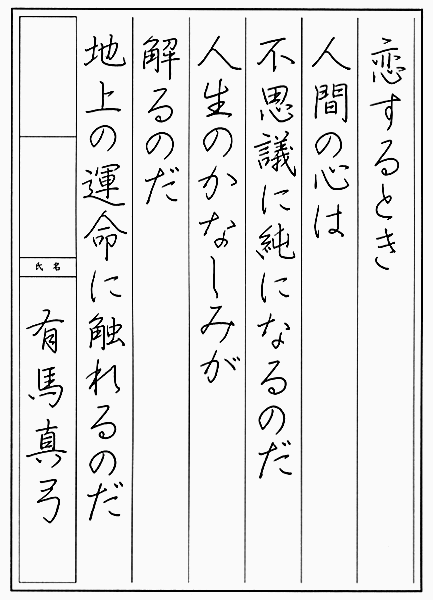 恋するとき
人間の心は
不思議に純になるのだ
人生のかなしみが
解るのだ
地上の運命に触れるのだ
氏名
有馬真弓